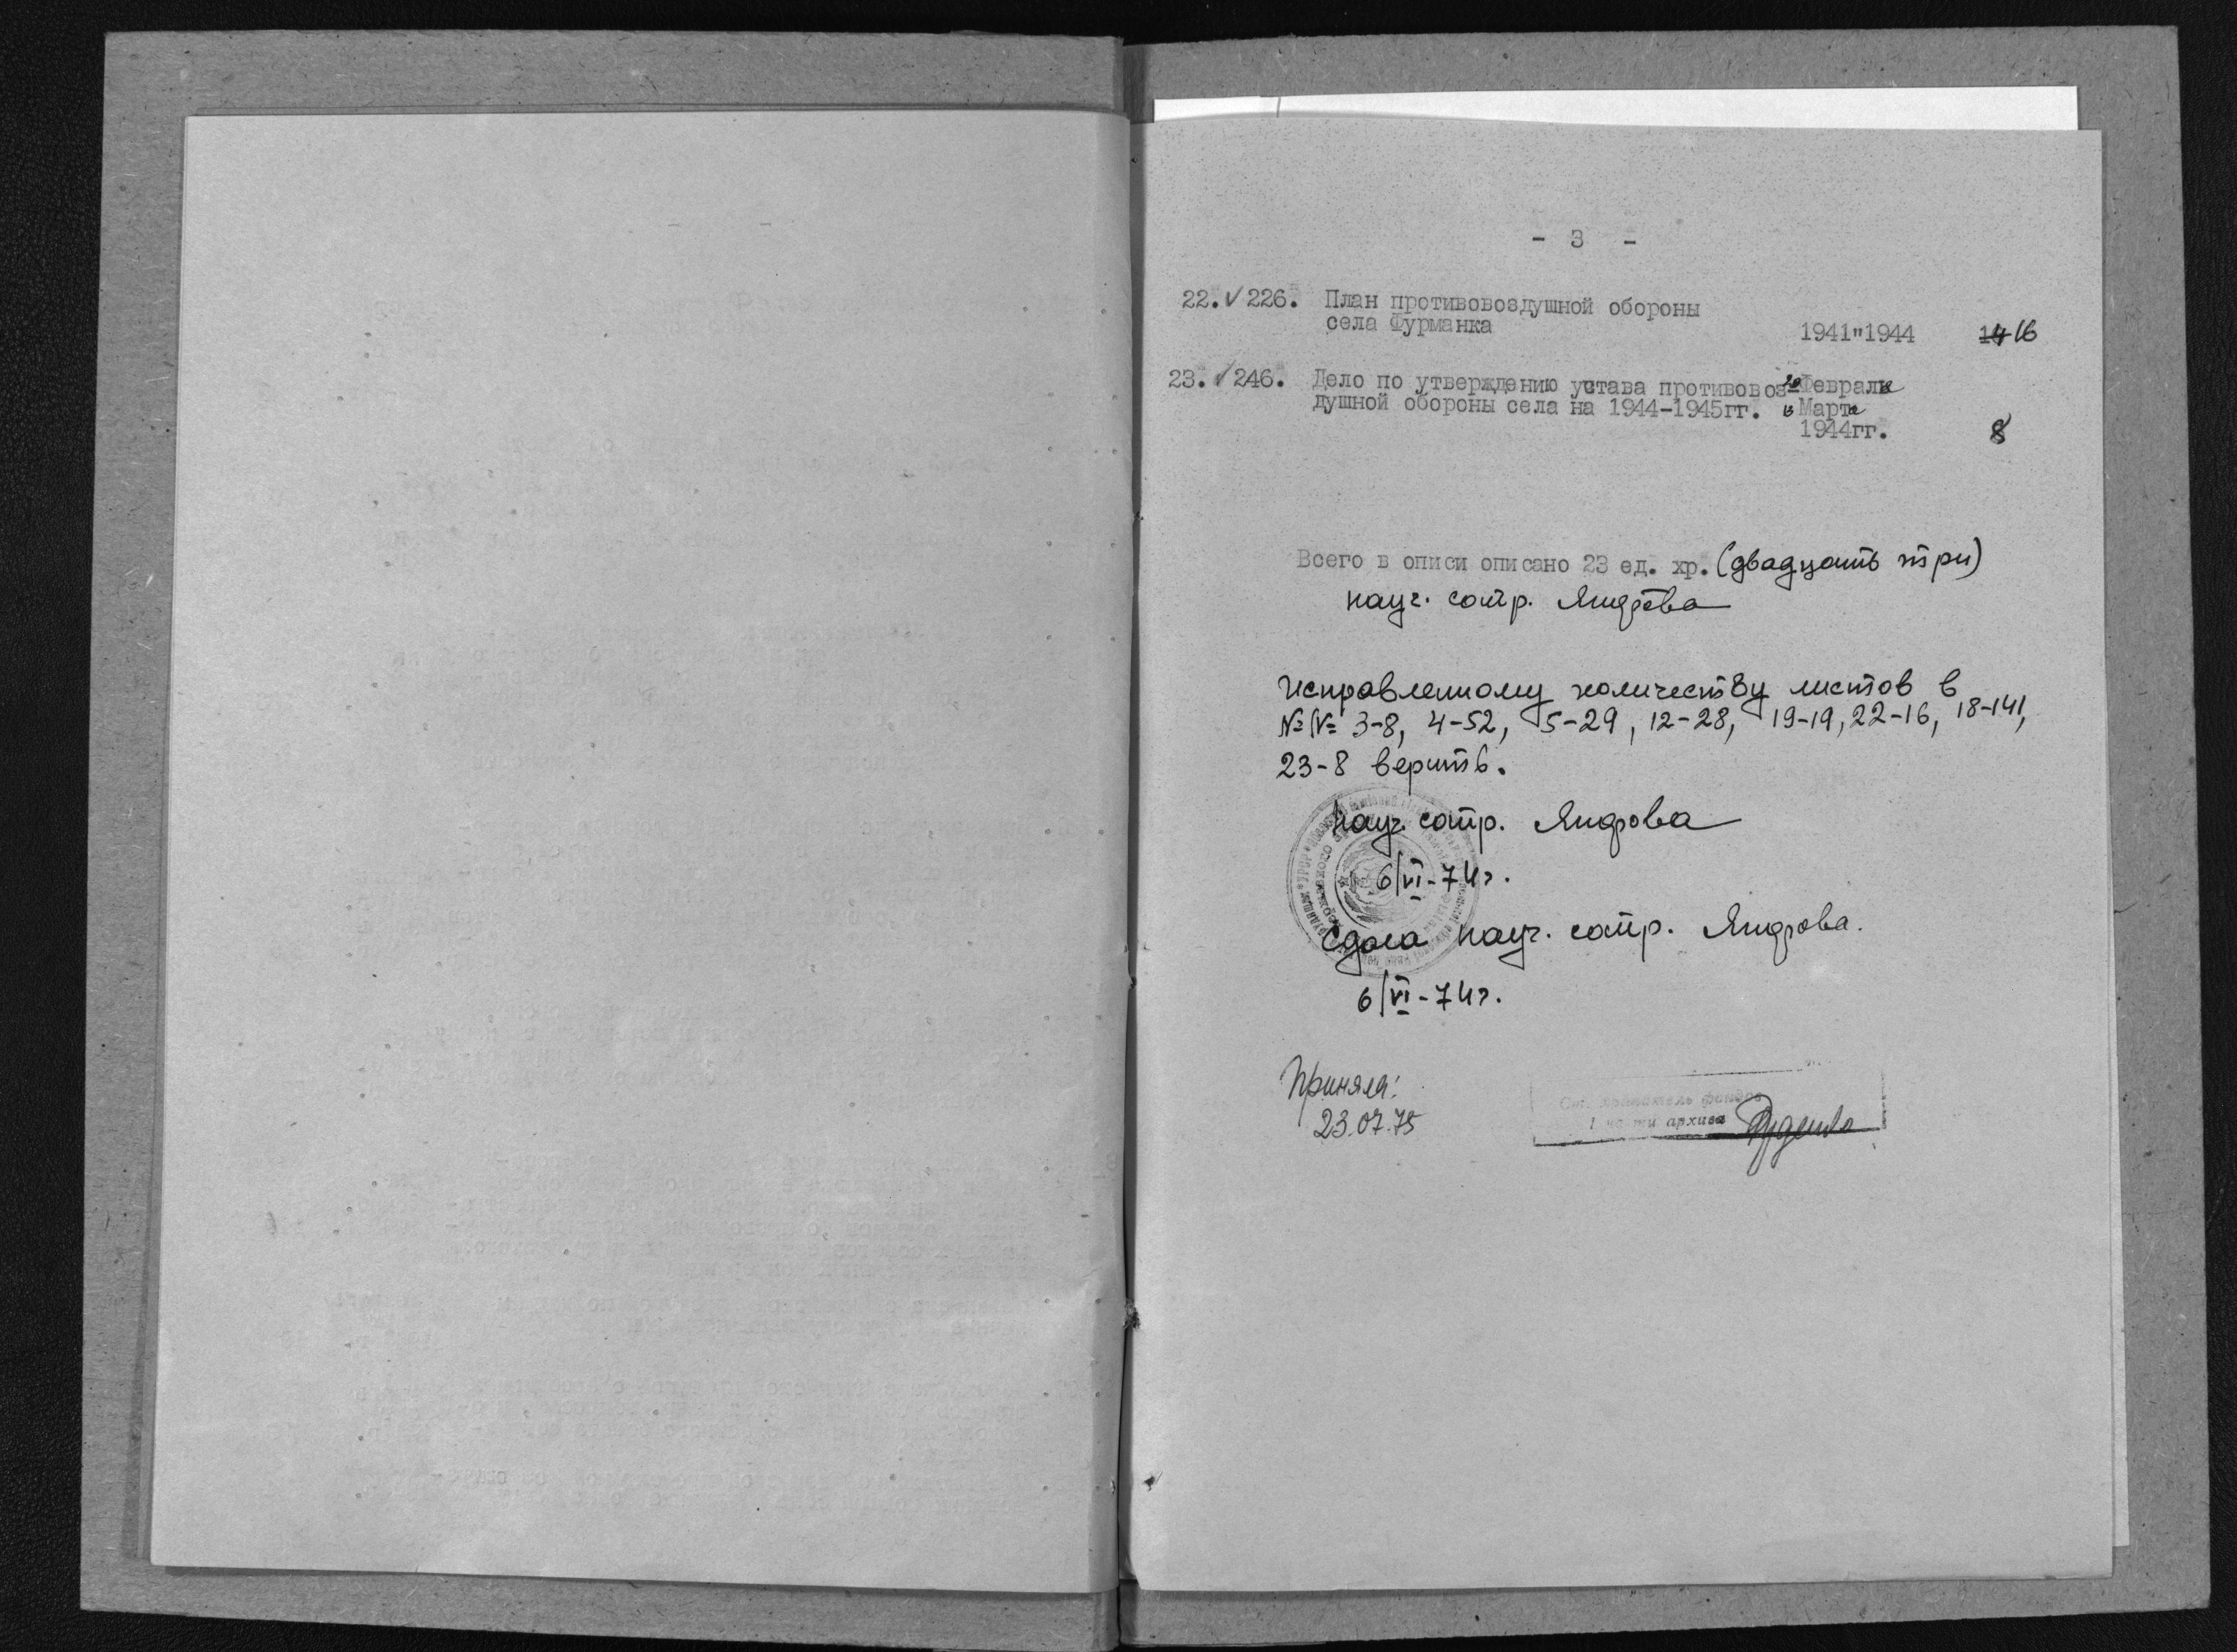 - 3 -
22. √ 226. План противовоздушной обороны
села Фурманка 1941"1944 14 16
23. √ 246. Дело по утверждению устава противовоз- 20 Февраля
душной обороны села на 1944-1945гг. 13 Марта
1944гг. 8
Всего в описи описано 23 ед. хр. (двадцать три)
науч. сотр.
Исправленному количеству листов в
№№ 3-8, 4-52, 5-29, 12-28, 19-19, 22-16, 18-141,
23-8 верить.
Науч. сотр.
6/VI-74г.
Сдала науч. сотр.
6/VI-74г.
Приняла:
23.07.75
хранитель фондов
архива